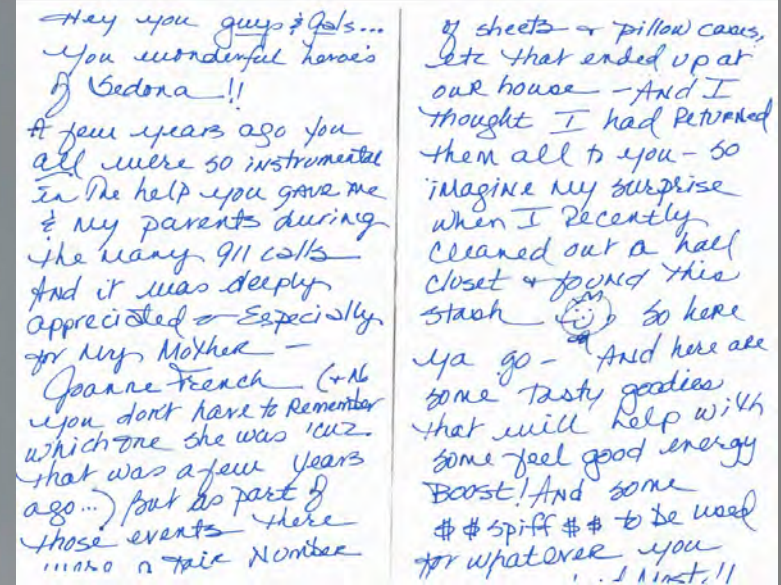 Hey you guys & Gals...
You wonderful heroe's
of Sedona !!
A few years ago you
all were so instrumental
In The help you gave me
& my parents during
the many 911 calls
And it was deeply
appreciated - Especially
for My Mother -
Joanne French (+ No
you don't have to Remember
which one she was 'cuz
that was a few years
ago...) But as part of
those events there
was a fair Number
of sheets + pillow cases,
etc that ended up at
our house - And I
thought I had Returned
them all to you - so
imagine my surprise
when I Recently
cleaned out a hall
closet + found this
stash so here
ya go - And here are
some Tasty goodies
that will help with
some feel good energy
Boost! And some
$ $ spiff $ $ to be used
for whatever you